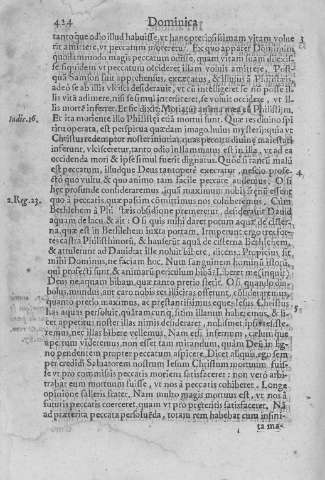 424 Dominica
tanto que odio illud habuisse, vt hanc pretiosissimam vitam voluerit amittere, vt peccatum interiret. Ex quo apparet Dominum
quodammodo magis peccatum odisse, quam vitam suam
siquidem vt peccatum occideret illam voluit amittere. Postquam
Samson fuit apprehensus, excæcatus, & illusus à Philistæis,
adeò se ab illis vlcisci desiderauit, vt cùm intelligeret se nõ posse illis vitã adimere, nisi se simul interficeret, se voluit occidere, vt illis
Iudic. 16. Et ita moriente illo Philistæi etiã mortui sunt. Quæ res diuino spiritu operata, est perspicua quædam imago huius mysterij: quia vt
Christus redemptor noster iniurias, quas peccata diuinæ maiestati
inferunt, vlcisceretur, tanto odio inflammatus est in illa, vt ad ea
occidenda mori & ipse simul fuerit dignatus. Quòd si tanti malũ
est peccatum, illudque Deus tantopere execratur, nescio profecto
quo vultu, & quo animo tam facile peccare audemus. O si
hęc profunde consideraremus, quã maximum nobis
2. Reg. 23. quo à peccatis, quæ passim cõmittimus nos cohiberemus. Cum
Bethlehem à Philistæis obsidione premeretur, desiderauit Dauid
aquam de lacu, & ait: O si quis mihi daret potum aquæ de cisterna,
quæ est in Bethlehem iuxta portam. Irruperunt ergo tres fortes
castra Philisthinorũ, & hauserũt aquã de cisterna Bethlehem,
& attulerunt ad Dauid: at ille noluit bibere, dicens: Propicius sit
mihi Dominus, ne faciam hoc. Num sanguinem hominũ istorũ,
qui profecti sunt, & animarũ periculum bibã? Liberet me (inquit)
Deus ne aquam bibam, quæ tanto pretio stetit. O si, quando diabolus, mundus aut caro nobis res illicitas offerunt, consideremus,
quanto pretio maximus, ac præstantissimus eques Iesus Christus
has aquas persoluit, quãtam cũq; sitim illarum habeamus, & licet appetitus noster illas nimis desideraret, nobismet ipsis resisteremus, nec illas bibere vellemus. Nam etsi infernum, cælumque
apertum videremus, non esset tam mirandum, quàm Deũ in ligno pendentem propter peccatum aspicere. Dicet aliquis, ego semper credidi Saluatorem nostrum Iesum Christum mortuum fuisse vt pro commissis peccatis moriens satisfaceret: non verò arbitrabar eum mortuum fuisse, vt nos à peccatis cohiberet. Longe
opinione falleris ista tec. Nam multo magis mortuus est, vt nos à
futuris peccatis coerceret, quam vt pro præteritis satisfaceret. Nã
ad præterita peccata persoluẽda, totam rem habebat cum infinita
ta ma-
3
4
5